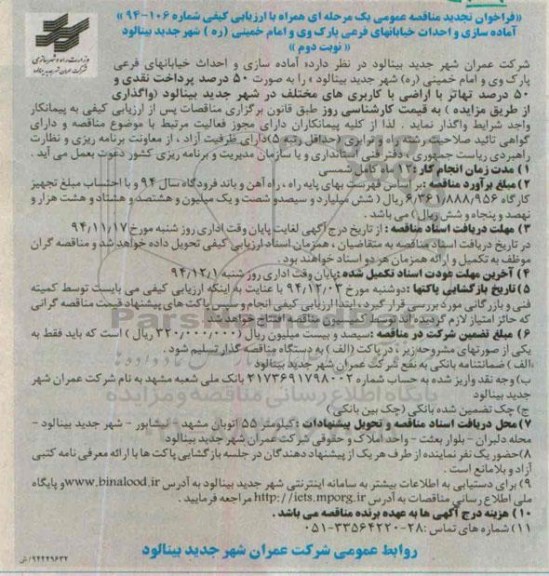 «فراخوان تجدید مناقصه عمومی یک مرحله ای همراه با ارزیابی کیفی شماره ۱۰۶-۹۴ »
آماده سازی و احداث خیابانهای فرعی پارک وی و امام خمینی (ره ) شهر جدید بینالود
« نوبت دوم »
وزارت راه و شهرسازی
شرکت عمران شهر جدید بینالود
شرکت عمران شهر جدید بینالود در نظر دارد« آماده سازی و احداث خیابانهای فرعی
پارک وی و امام خمینی (ره) شهر جدید بینالود » را به صورت ۵۰ درصد پرداخت نقدی و
۵۰ درصد تهاتر با اراضی با کاربری های مختلف در شهر جدید بینالود (واگذاری
از طریق مزایده ) به قیمت کارشناسی روز طبق قانون برگزاری مناقصات پس از ارزیابی کیفی به پیمانکار
واجد شرایط واگذار نماید . لذا از کلیه پیمانکاران دارای مجوز فعالیت مرتبط با موضوع مناقصه و دارای
گواهی تائید صلاحیت راه و ترابری (حداقل رتبه ۵)دارای ظرفیت آزاد ، از معاونت برنامه ریزی و نظارت
راهبردی ریاست جمهوری ، دفتر فنی استانداری و یا سازمان مدیریت و برنامه ریزی کشور دعوت بعمل می آید .
۱) مدت زمان انجام کار :۱۲ ماه کامل شمسی
۲)مبلغ برآورد مناقصه : بر اساس فهرست بهای پایه راه ، راه آهن و باند فرودگاه سال ۹۴ و با احتساب مبلغ تجهیز
کارگاه ۶/۳۶۱/۸۸۸/۹۵۶ ریال ( شش میلیارد و سیصدو شصت و یک میلیون و هشتصد و هشتاد و هشت هزار و
نهصد و پنجاه و شش ریال) می باشد .
۳) مهلت دریافت اسناد مناقصه : از تاریخ درج آگهی لغایت پایان وقت اداری روز شنبه مورخ ۹۴/۱۱/۱۷
در تاریخ دریافت اسناد مناقصه به متقاضیان ، همزمان اسناد ارزیابی کیفی تحویل داده خواهد شد و مناقصه گران
موظف به تکمیل و ارائه همزمان هر دو اسناد خواهند بود .
۴) آخرین مهلت عودت اسناد تکمیل شده : پایان وقت اداری روز شنبه ۹۴/۱۲/۱
۵) تاریخ بازگشایی پاکتها :دوشنبه مورخ ۹۴/۱۲/۰۳ با عنایت به اینکه ارزیابی کیفی می بایست توسط کمیته
فنی و بازرگانی مورد بررسی قرار گیرد ، ابتدا ارزیابی کیفی انجام و سپس پاکت های پیشنهاد قیمت مناقصه گرانی
که حائز امتیاز لازم گردیده اند در کمیسیون مناقصه افتتاح خواهد شد
۶) مبلغ تضمین شرکت در مناقصه :سیصد و بیست میلیون ریال (۳۲۰/۰۰۰/۰۰۰ ریال ) است که باید فقط به
یکی از صورتهای مشروحه زیر ، در پاکت (الف ) به دستگاه مناقصه گذار تسلیم شود .
الف ) ضمانتنامه بانکی به نفع شرکت عمران شهر جدید بینالود
ب) وجه نقد واریز شده به حساب شماره ۲۱۷۳۶۹۱۷۹۸۰۰۲ بانک ملی شعبه مشهد به نام شرکت عمران شهر
جدید بینالود
ج) چک تضمین شده بانکی (چک بین بانکی )
۷) محل دریافت اسناد مناقصه و تحویل پیشنهادات :کیلومتر ۵۵ اتوبان مشهد - نیشابور - شهر جدید بینالود -
محله دلبران - بلوار بعثت - واحد املاک و حقوقی شرکت عمران شهر جدید بینالود
۸)حضور یک نفر نماینده از طرف هر یک از پیشنهاد دهندگان در جلسه بازگشایی پاکت ها با ارائه معرفی نامه کتبی
آزاد و بلامانع است .
۹) برای دستیابی به اطلاعات بیشتر به سامانه اینترنتی شهر جدید بینالود به آدرس www.binalood.ir و پایگاه
ملی اطلاع رسانی مناقصات به آدرس http://iets.mporg.ir مراجعه فرمایید .
۱۰) هزینه درج آگهی ها به عهده برنده مناقصه می باشد .
۱۱) شماره های تماس :۲۸-۳۳۵۶۴۲۲۰-۰۵۱
روابط عمومی شرکت عمران شهر جدید بینالود
۹۴۴۴۹۶۳۲/ش